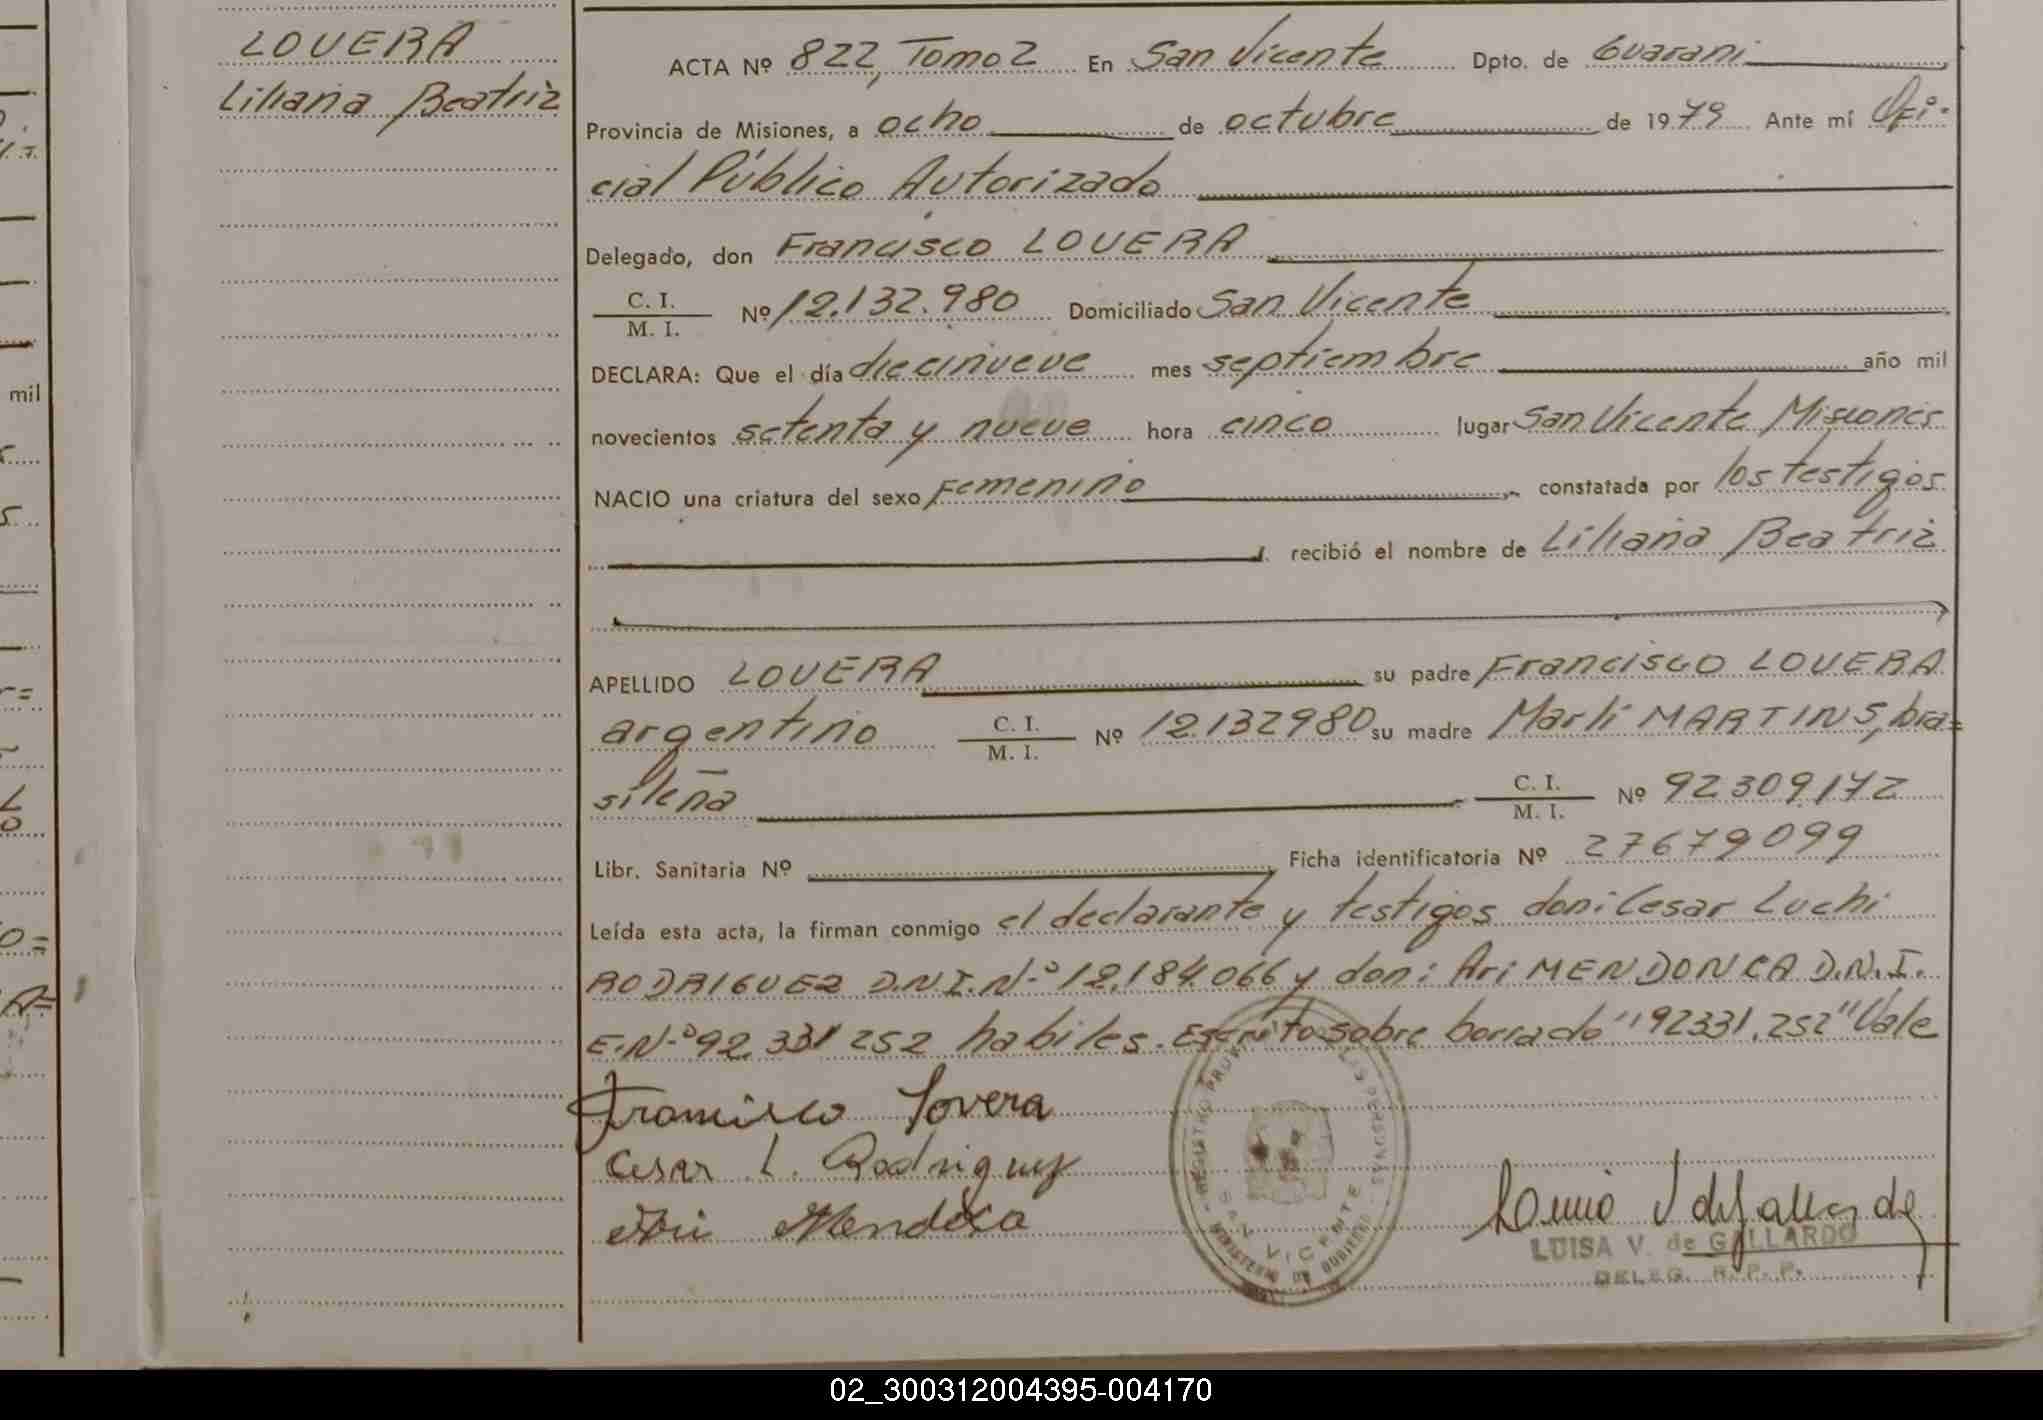 LOVERA
Liliana Beatriz
ACTA Nº 822, Tomo 2 En San Vicente Dpto. de Guarani
Provincia de Misiones, a ocho de octubre de 1979 Ante mí Ofi-
cial Público Autorizado
Delegado, don Francisco LOVERA
C. I.
M. I. Nº 12.132.980 Domiciliado San Vicente
DECLARA: Que el día diecinueve mes septiembre año mil
novecientos setenta y nueve hora cinco lugar San Vicente Misiones
NACIO una criatura del sexo Femenino constatada por los testigos
recibió el nombre de Liliana Beatriz
APELLIDO LOVERA su padre Francisco LOVERA
argentino C. I.
M. I. Nº 12.132980 su madre Marli MARTINS, bra=
sileña C. I.
M. I. Nº 92309172
Libr. Sanitaria Nº Ficha identificatoria Nº 27679099
Leída esta acta, la firman conmigo el declarante y testigos don: Cesar Luchi
RODRIGUEZ D.N.I. Nº 12.184.066 y don: Ari MENDONCA D.N.I.
E.Nº 92.331 252 habiles. Escrito sobre borrado "92331.252" Vale
Francisco Lovera
Cesar L. Rodriguez
Ari Mendoca
REGISTRO PROV. DE LAS PERSONAS
SAN VICENTE
MINISTERIO DE GOBIERNO
LUISA V. de GALLARDO
DELEG. R. P. P.
mil
02_300312004395-004170